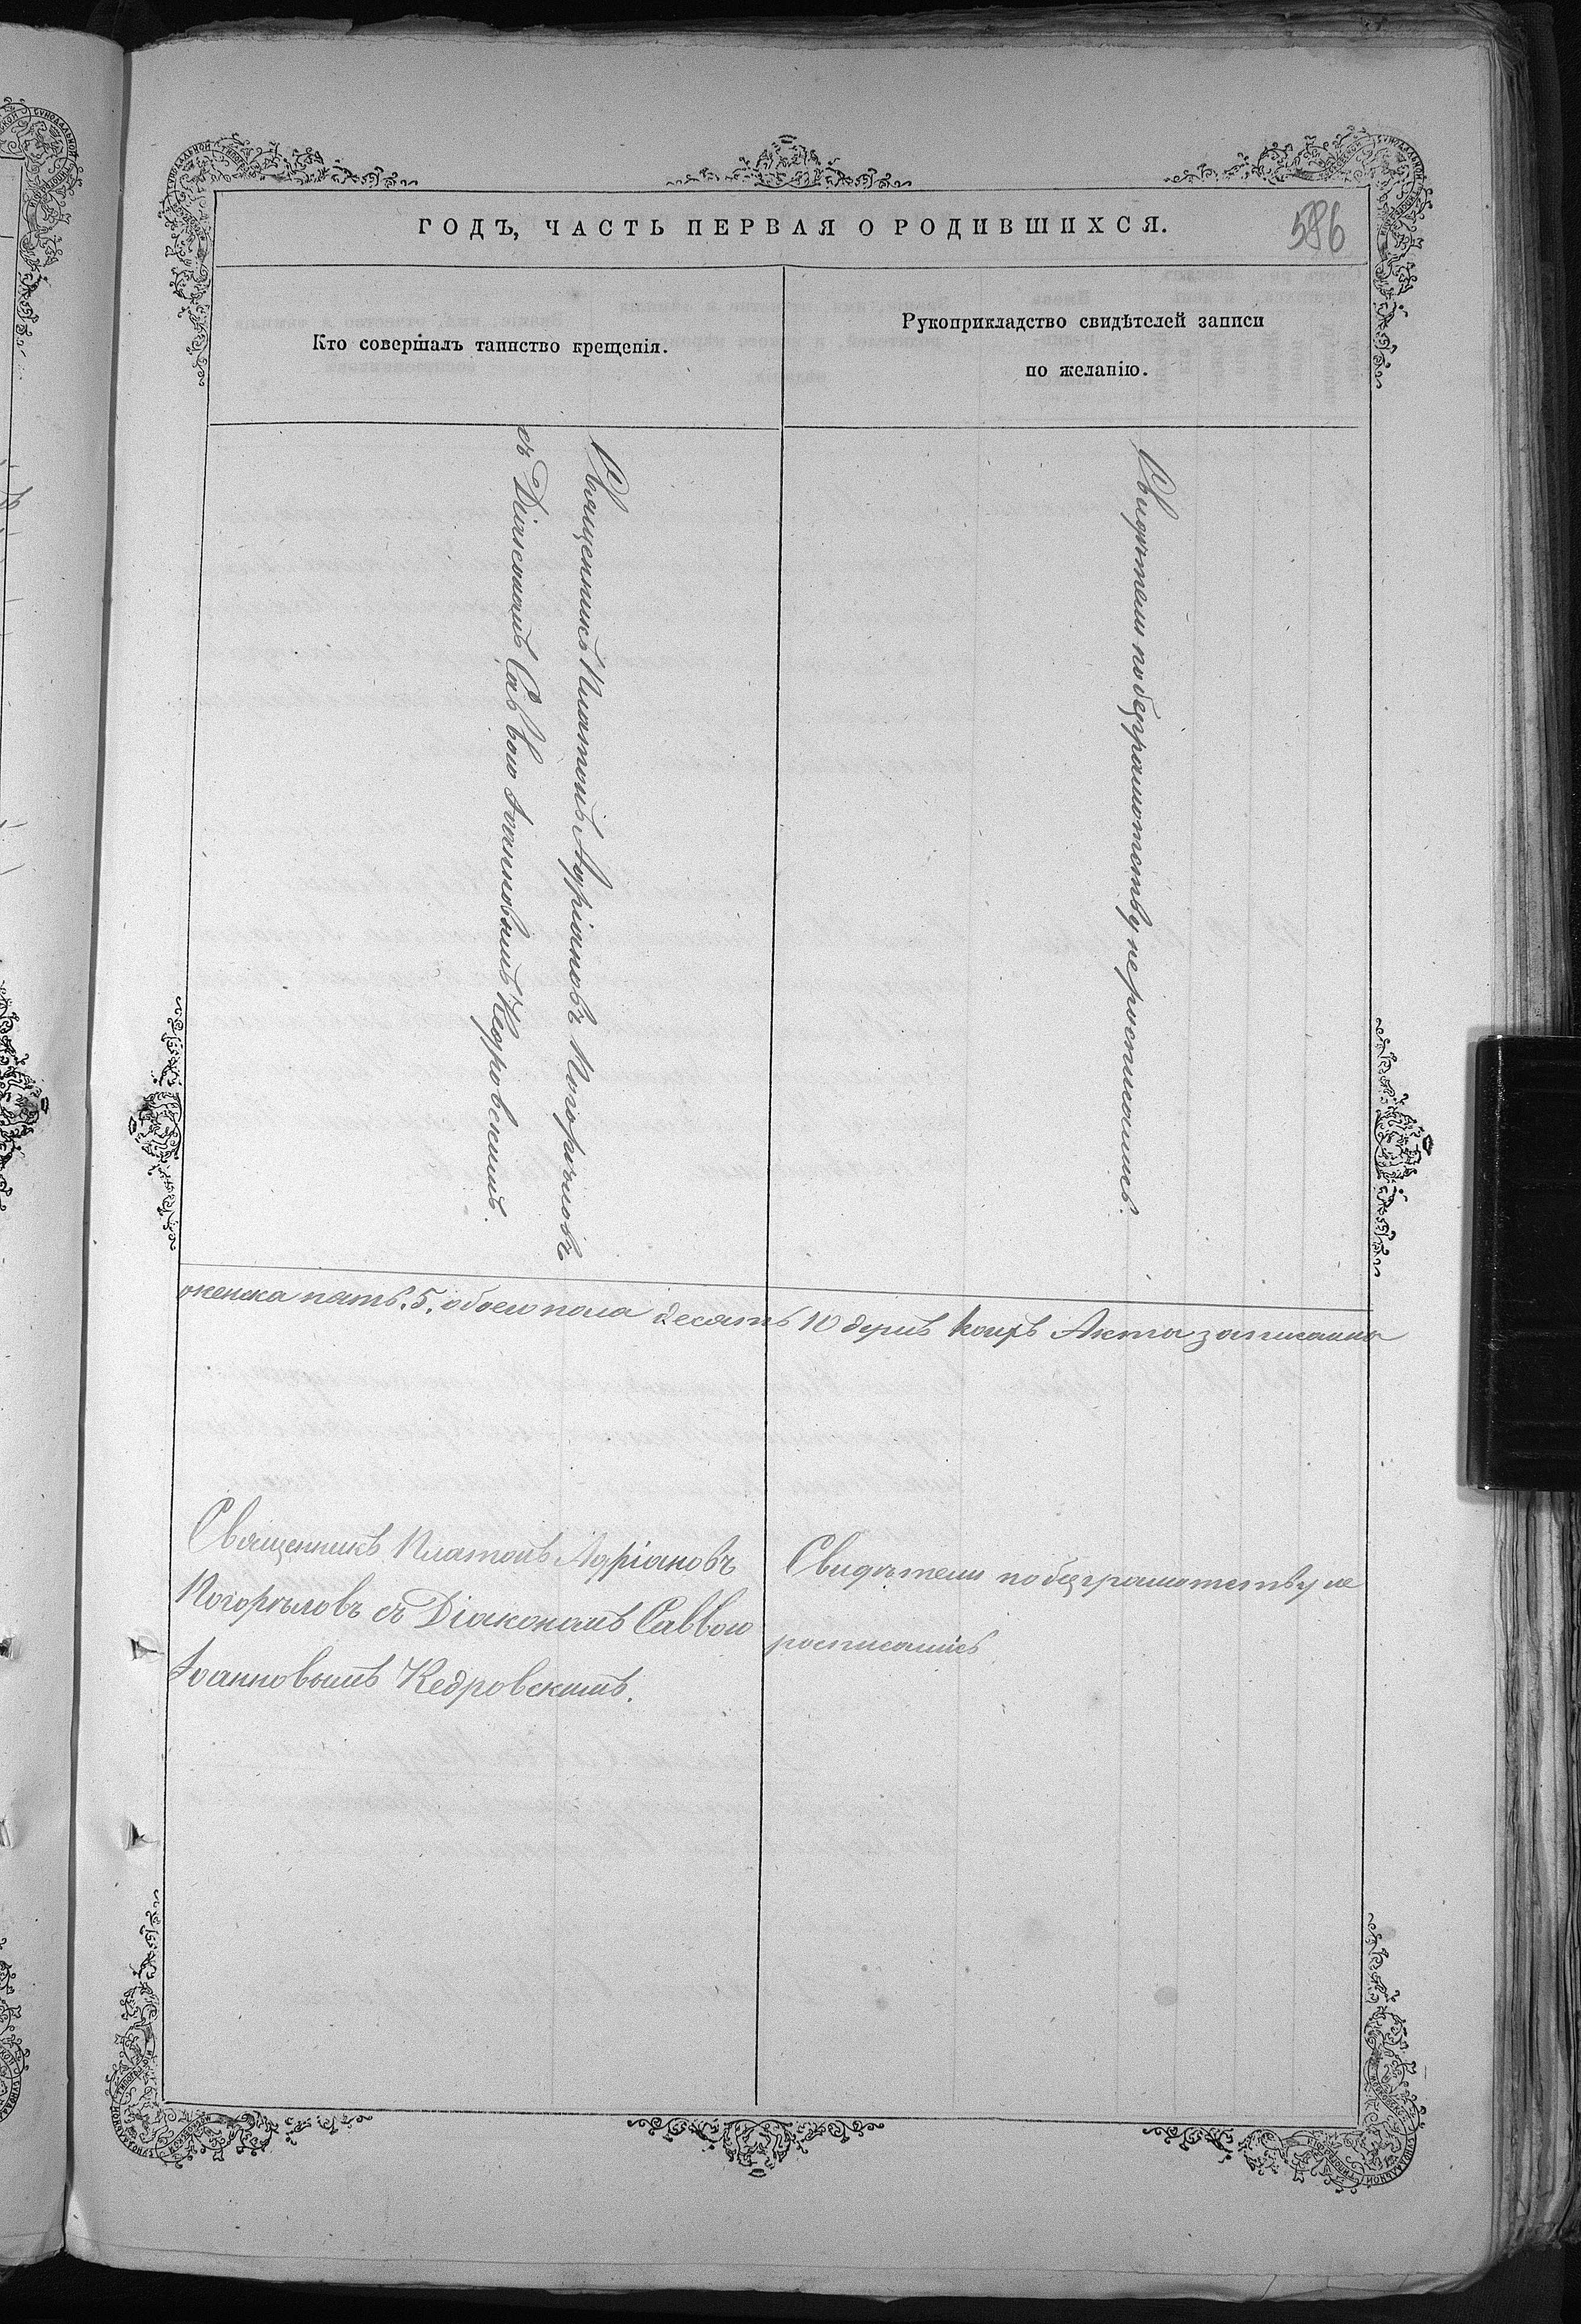 ГОДЪ, ЧАСТЬ ПЕРВАЯ О РОДИВШИХСЯ.
586
Кто совершалъ таинство крещенія.
Рукоприкладство свидѣтелей записи
по желанію.
Священникъ Платонъ Адріановъ Погорѣловъ
съ Діакономъ Саввою Іоанновымъ Кедровскимъ.
Свидѣтели по безграмотству не росписались.
женска пять. 5. обоего пола десять 10 Акта записанна
Священникъ Платонъ Адріановъ
Погорѣловъ съ Діакономъ Саввою
Іоанновымъ Кедровскимъ.
Свидѣтели по безграмотству не
росписались